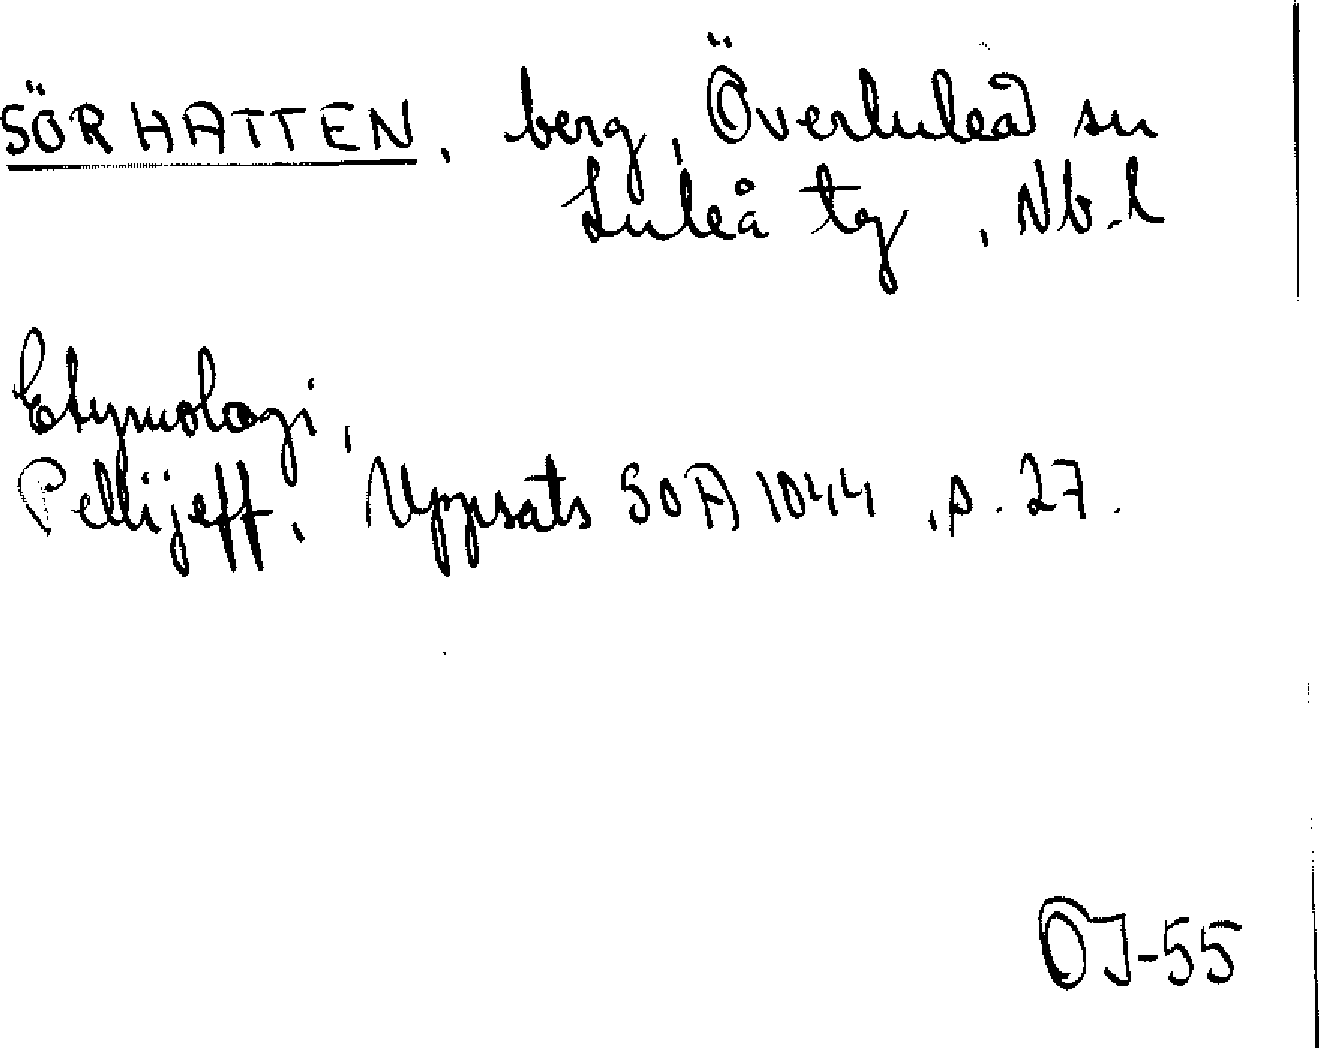 SÖRHATTEN, berg, Överluleå sn
Luleå tg, Nb.l
Etymologi,
Pellijeff, Uppsats SOA 1044, s. 27.
OJ-55